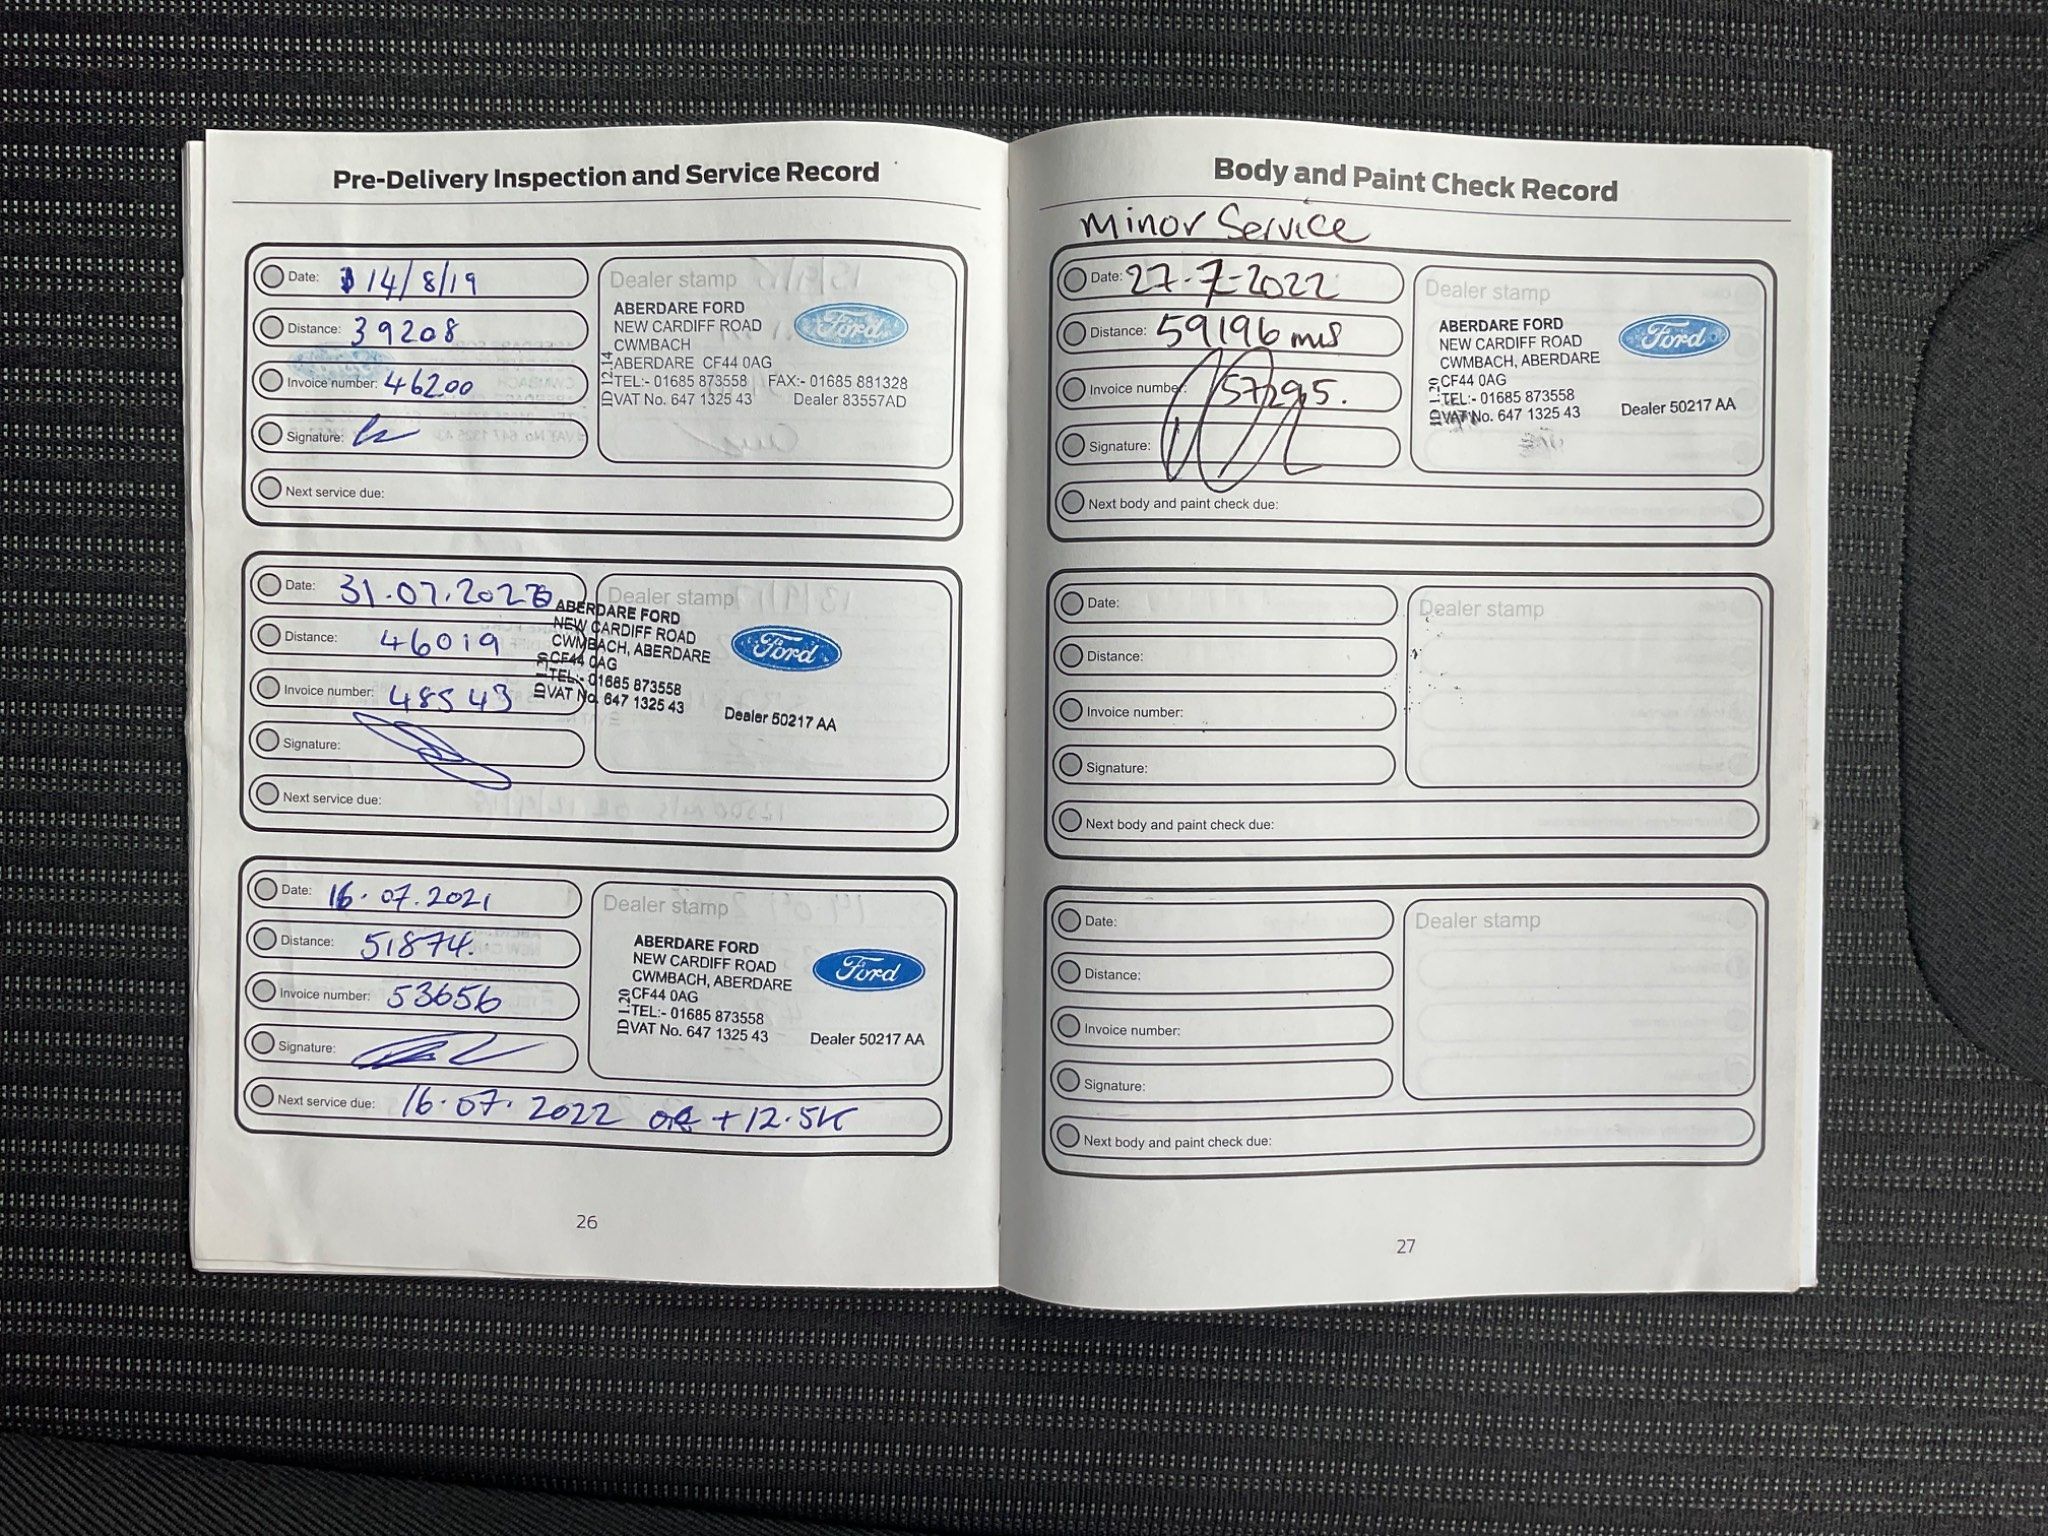 Pre-Delivery Inspection and Service Record
Date: 14/8/19
Distance: 39208
Invoice number: 46200
Signature:
Next service due:
Dealer stamp
ABERDARE FORD
NEW CARDIFF ROAD
CWMBACH
ABERDARE CF44 0AG
TEL:- 01685 873558 FAX:- 01685 881328
VAT No. 647 1325 43 Dealer 83557AD
ID 12.14
Ford
Date: 31.07.2020
Distance: 46019
Invoice number: 48543
Signature:
Next service due:
Dealer stamp
ABERDARE FORD
NEW CARDIFF ROAD
CWMBACH, ABERDARE
CF44 0AG
TEL:- 01685 873558
VAT No. 647 1325 43
Dealer 50217 AA
Ford
Date: 16.07.2021
Distance: 51874.
Invoice number: 53656
Signature:
Next service due: 16.07.2022 OR +12.5K
Dealer stamp
ABERDARE FORD
NEW CARDIFF ROAD
CWMBACH, ABERDARE
CF44 0AG
TEL:- 01685 873558
VAT No. 647 1325 43
ID 1.20
Dealer 50217 AA
Ford
26
Body and Paint Check Record
Minor Service
Date: 27-7-2022
Distance: 59196 mls
Invoice number: 57295.
Signature:
Next body and paint check due:
Dealer stamp
ABERDARE FORD
NEW CARDIFF ROAD
CWMBACH, ABERDARE
CF44 0AG
TEL:- 01685 873558
VAT No. 647 1325 43
ID 1.20
Dealer 50217 AA
Ford
Date:
Distance:
Invoice number:
Signature:
Next body and paint check due:
Dealer stamp
Date:
Distance:
Invoice number:
Signature:
Next body and paint check due:
Dealer stamp
27